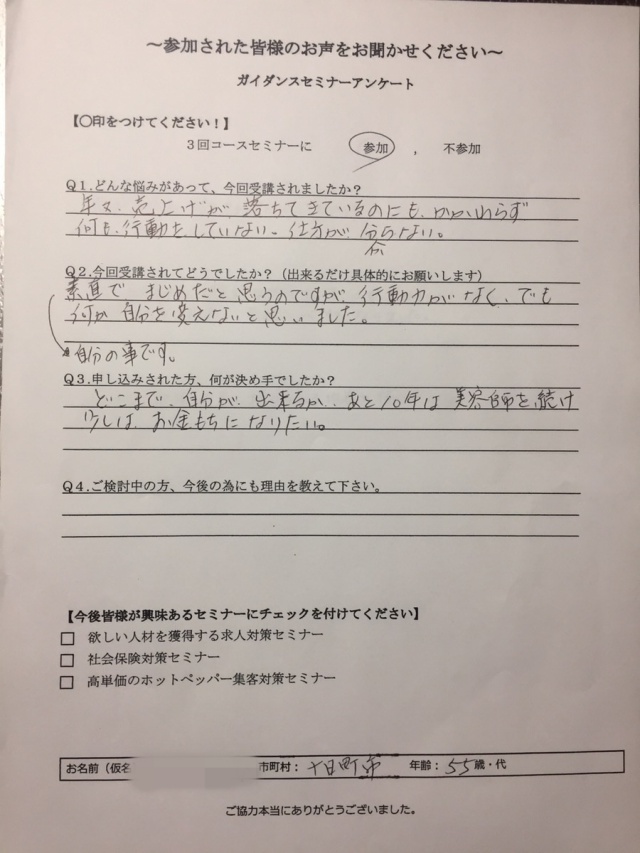 ～参加された皆様のお声をお聞かせください～
ガイダンスセミナーアンケート
【〇印をつけてください！】
３回コースセミナーに 参加 ， 不参加
Ｑ１.どんな悩みがあって、今回受講されましたか？
年々、売上げが 落ちてきているのにも、かかわらず
何も、行動を、していない。仕方が 分らない。
Ｑ２.今回受講されてどうでしたか？（出来るだけ具体的にお願いします）
素直で まじめだと 思うのですが、行動力がなく、でも
何か 自分を変えないと思いました。
自分の事です。
Ｑ３.申し込みされた方、何が決め手でしたか？
どこまで、自分が、出来るか、あと10年は 美容師を、続け
少しは、お金もちになりたい。
Ｑ４.ご検討中の方、今後の為にも理由を教えて下さい。
【今後皆様が興味あるセミナーにチェックを付けてください】
欲しい人材を獲得する求人対策セミナー
社会保険対策セミナー
高単価のホットペッパー集客対策セミナー
お名前（仮名 市町村： 十日町市 年齢： 55歳・代
ご協力本当にありがとうございました。